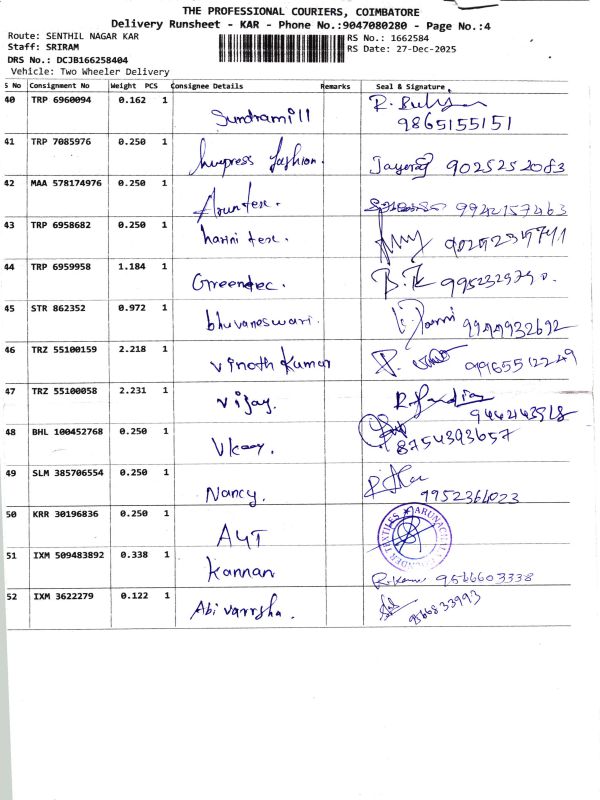 THE PROFESSIONAL COURIERS, COIMBATORE
Delivery Runsheet - KAR - Phone No.:9047080280 - Page No.:4
Route: SENTHIL NAGAR KAR
RS No.: 1662584
Staff: SRIRAM
RS Date: 27-Dec-2025
DRS No.: DCJB166258404
Vehicle: Two Wheeler Delivery
S No Consignment No Weight PCS Consignee Details Remarks Seal & Signature
40 TRP 6960094 0.162 1 Sundramill
9865155151
41 TRP 7085976 0.250 1 fashion. Jayaraj 9025252083
42 MAA 578174976 0.250 1 Arun tex. 9942157463
43 TRP 6958682 0.250 1 harini tex.
44 TRP 6959958 1.184 1 Greentec.
45 STR 862352 0.972 1 bhuvaneswari. 9944932692
46 TRZ 55100159 2.218 1 Vinoth Kumar
47 TRZ 55100058 2.231 1 Vijay.
48 BHL 100452768 0.250 1 8754393657
49 SLM 385706554 0.250 1 Nancy. 9952364023
50 KRR 30196836 0.250 1 AYT
51 IXM 509483892 0.338 1 Kannan 9566603338
52 IXM 3622279 0.122 1 Abi varrsha.